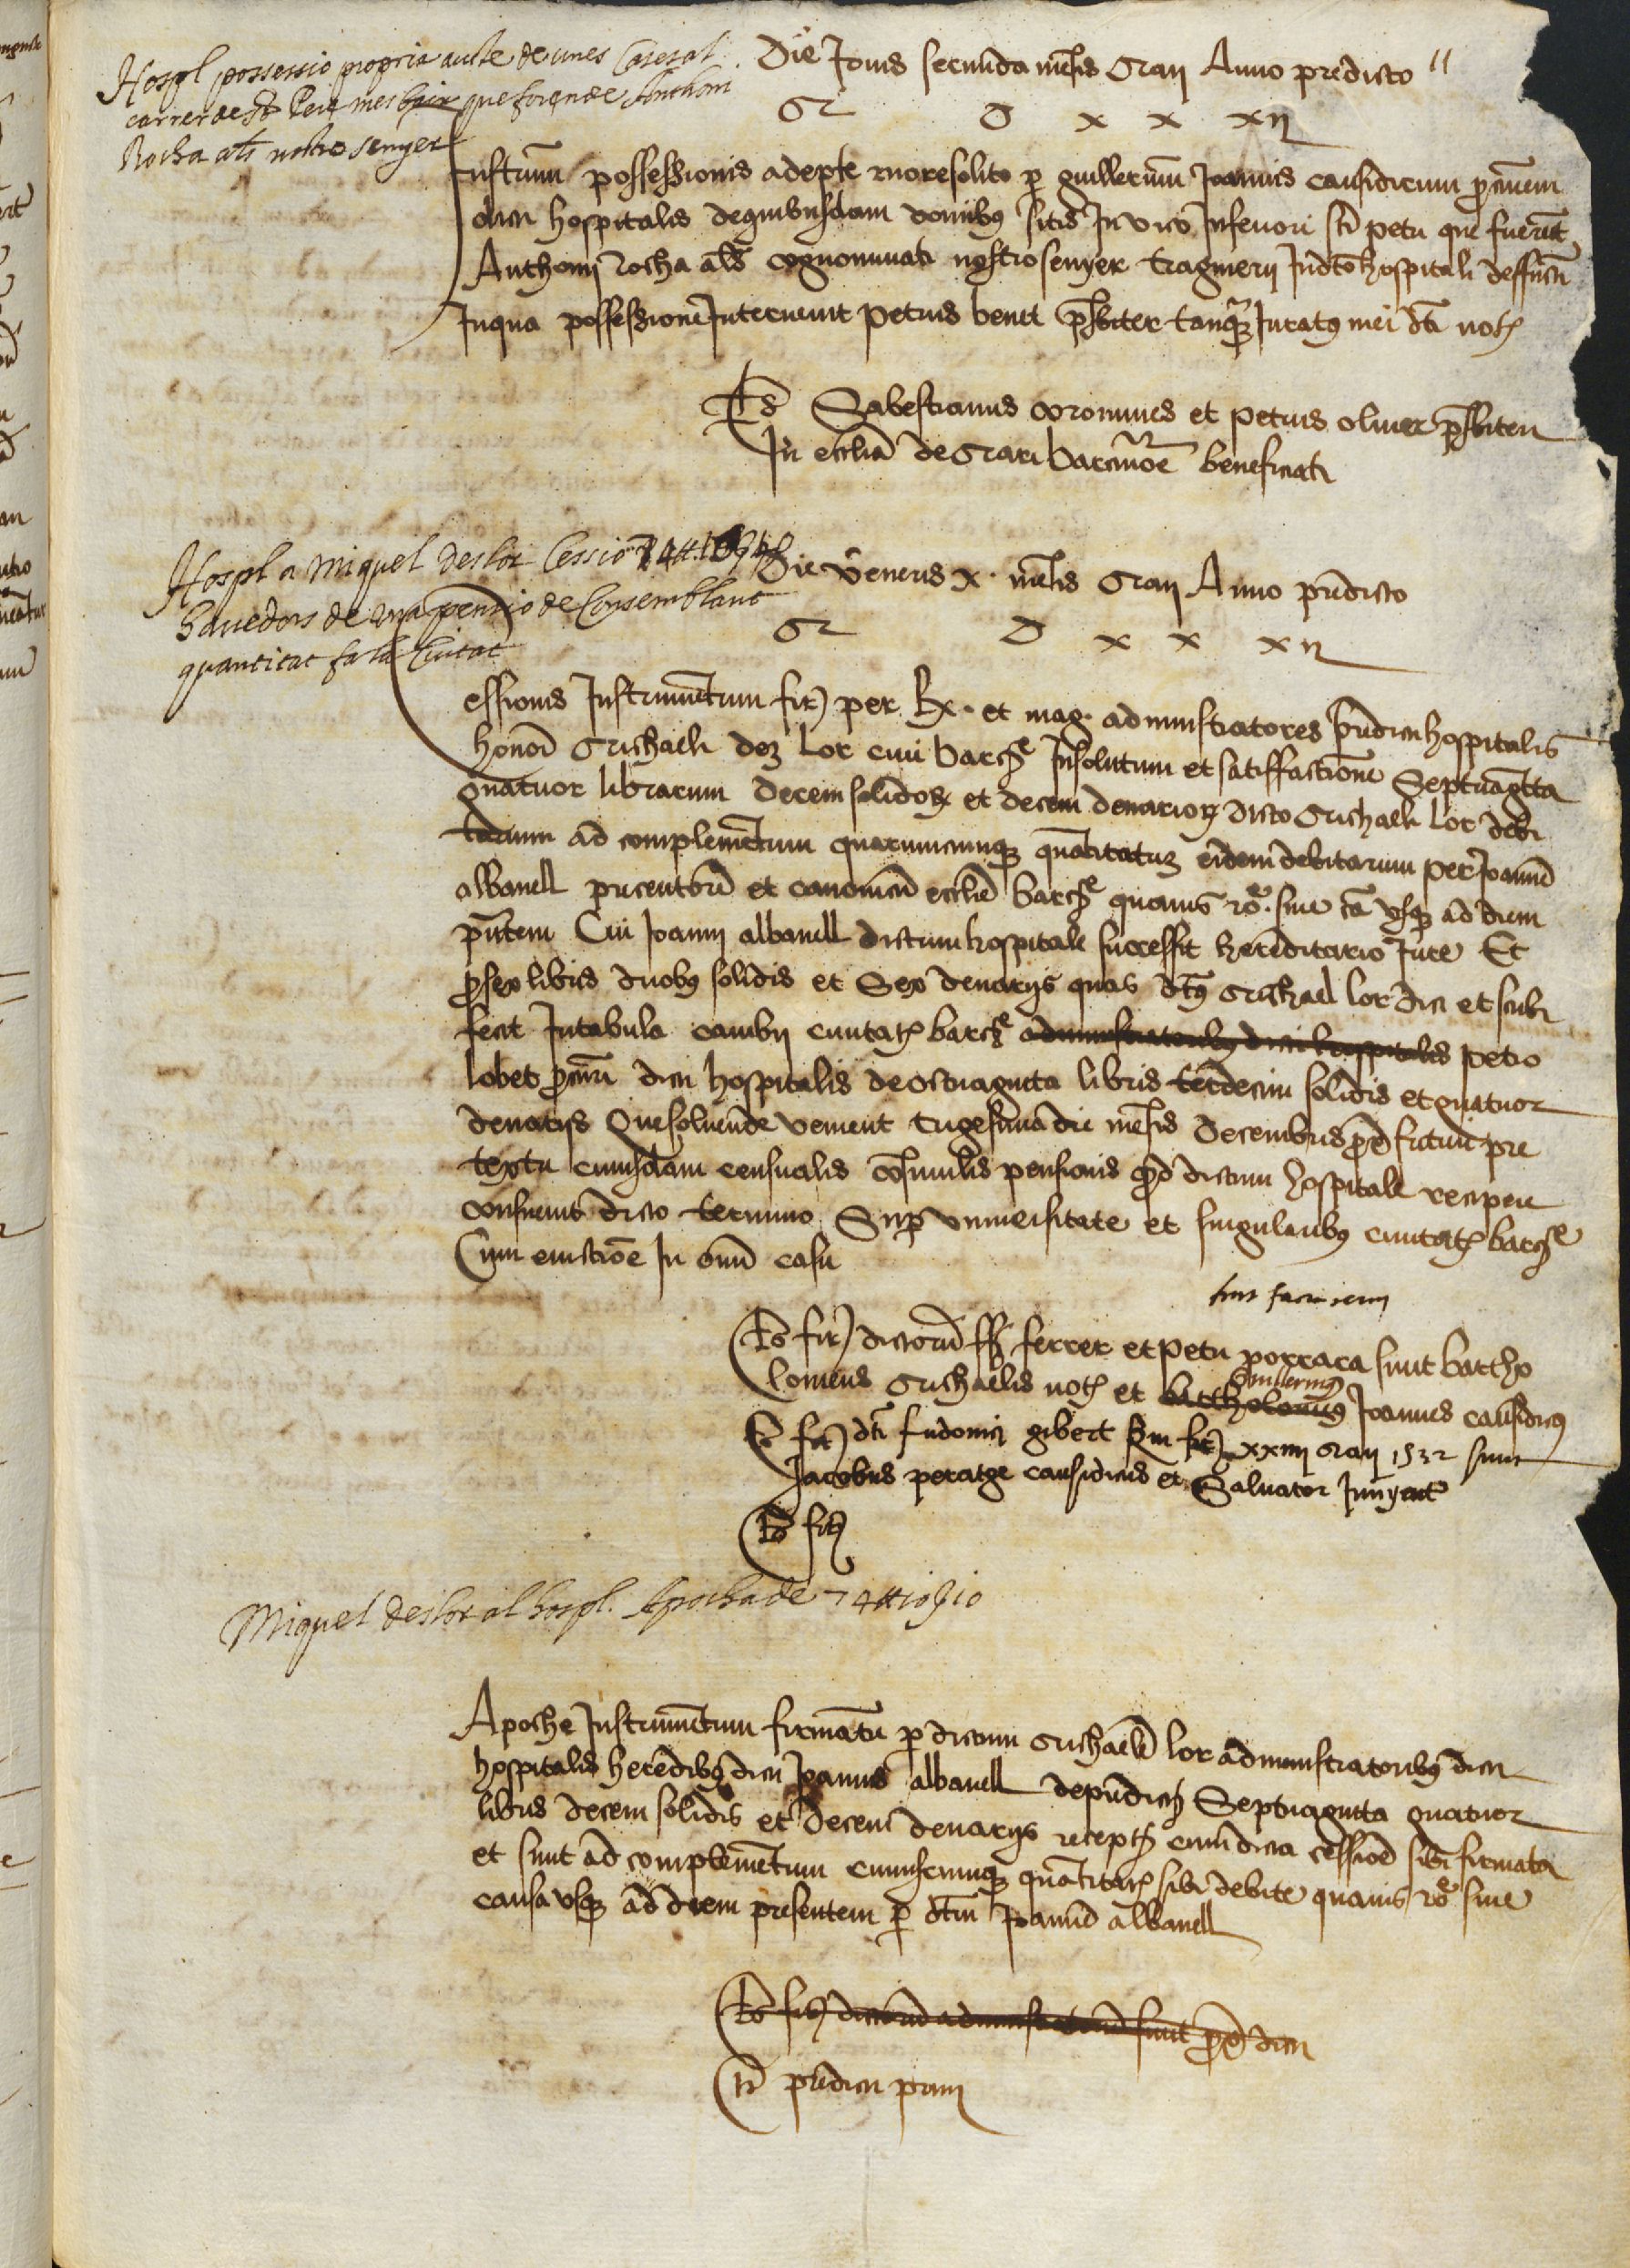 Hospl possessio propria aucte de unes Cases al
carrer de St Pere mes baix que foren de Anthoni
Rocha als nostro senyer
Die Jovis secunda mēsis Maij Anno predicto
M D x x xij
Instrum̄ possessionis adepte more solito p guillermū Joannis causidicum p̄curem
dicti hospitalis de quibusdam domibus sitis In vico Inferiori sti petri que fuerūt
Anthonij rocha als̄ cognominati nostro senyer traginerij In dc̄o hospitali deffuncti
In qua possessione Intervenit Petrus benet p̄sbiter tanq̄ Juratus mei dc̄i not
Ts Sabestianus coromines et Petrus oliver p̄sbiteri
In ecclīa de Mari barcinōe beneficiati
Hospl a Miquel deslor Cessio
havedors de una pensio de Consemblant
quantitat fa la Ciutat
Die veneris x mēsis Maij Anno p̄dicto
M D x x xij
Cessionis Instrumētum fir per Rx. et mag. administratores p̄dicti hospitalis
honori Michaeli dez lor civi barch̄e In solutum et satisfactionē Septuagīta
quatuor librarum decem solidorz et decem denariorz dicto Michaeli lor debi
tarum ad complemētum quarumcumqz quātitatuz eidem debitarum per Joannē
albanell precentorē et canonicū ecclīe barch̄e quavis rō. sive cā usqz ad diem
p̄ntem Cui Joanni albanell dictum hospitale successit hereditario Jure Et
p sex libris duobus solidis et Sex denarijs quas dc̄us Michael lor dici et scribi
fecit In tabula cambij civitatis barch̄e administratoribus dicti hospitalis petro
lobet p̄curi dicti hospitalis de octuaginta libris terdecim solidis et quatuor
denarijs Que solvende venient trigesima die mēsis decembris p̄xē futuri pre
textu cuiusdam censualis cōsimilis pensionis qd dictum hospitale recipere
consuevit dicto termino Sup universitate et singularibus civitatis barch̄e
Cum evictiōe In omni casu
Ts fir dictorū ffr ferrer et Petri
sunt bartho
lomeus Michaelis not et bartholomeus Guillermus Joannes causidicus
Ts fir dc̄i ludovici gibert qui fir xxiiij Maij 1532 sunt
Jacobus peratge causidicus et Salvator Junyent
Ts fir
Miquel deslor al hospl. Apocha de 74 ll 10 s 10
Apoche Instrumētum firmatū p dictum Michaelē lor administratoribus dicti
hospitalis heredibus dicti Joannis albanell de p̄dictis Septuaginta quatuor
libris decem solidis et decem denarijs receptis cum dicta cessiōe sibi firmata
et sunt ad complemētum cuiuscumqz quātitatis sibi debite quavis rōe sive
causa usqz ad diem presentem p dc̄um Joannē albanell
Ts fir dictorū administratorū sunt p̄xē dicti
Ts p̄dicti p̄ximi